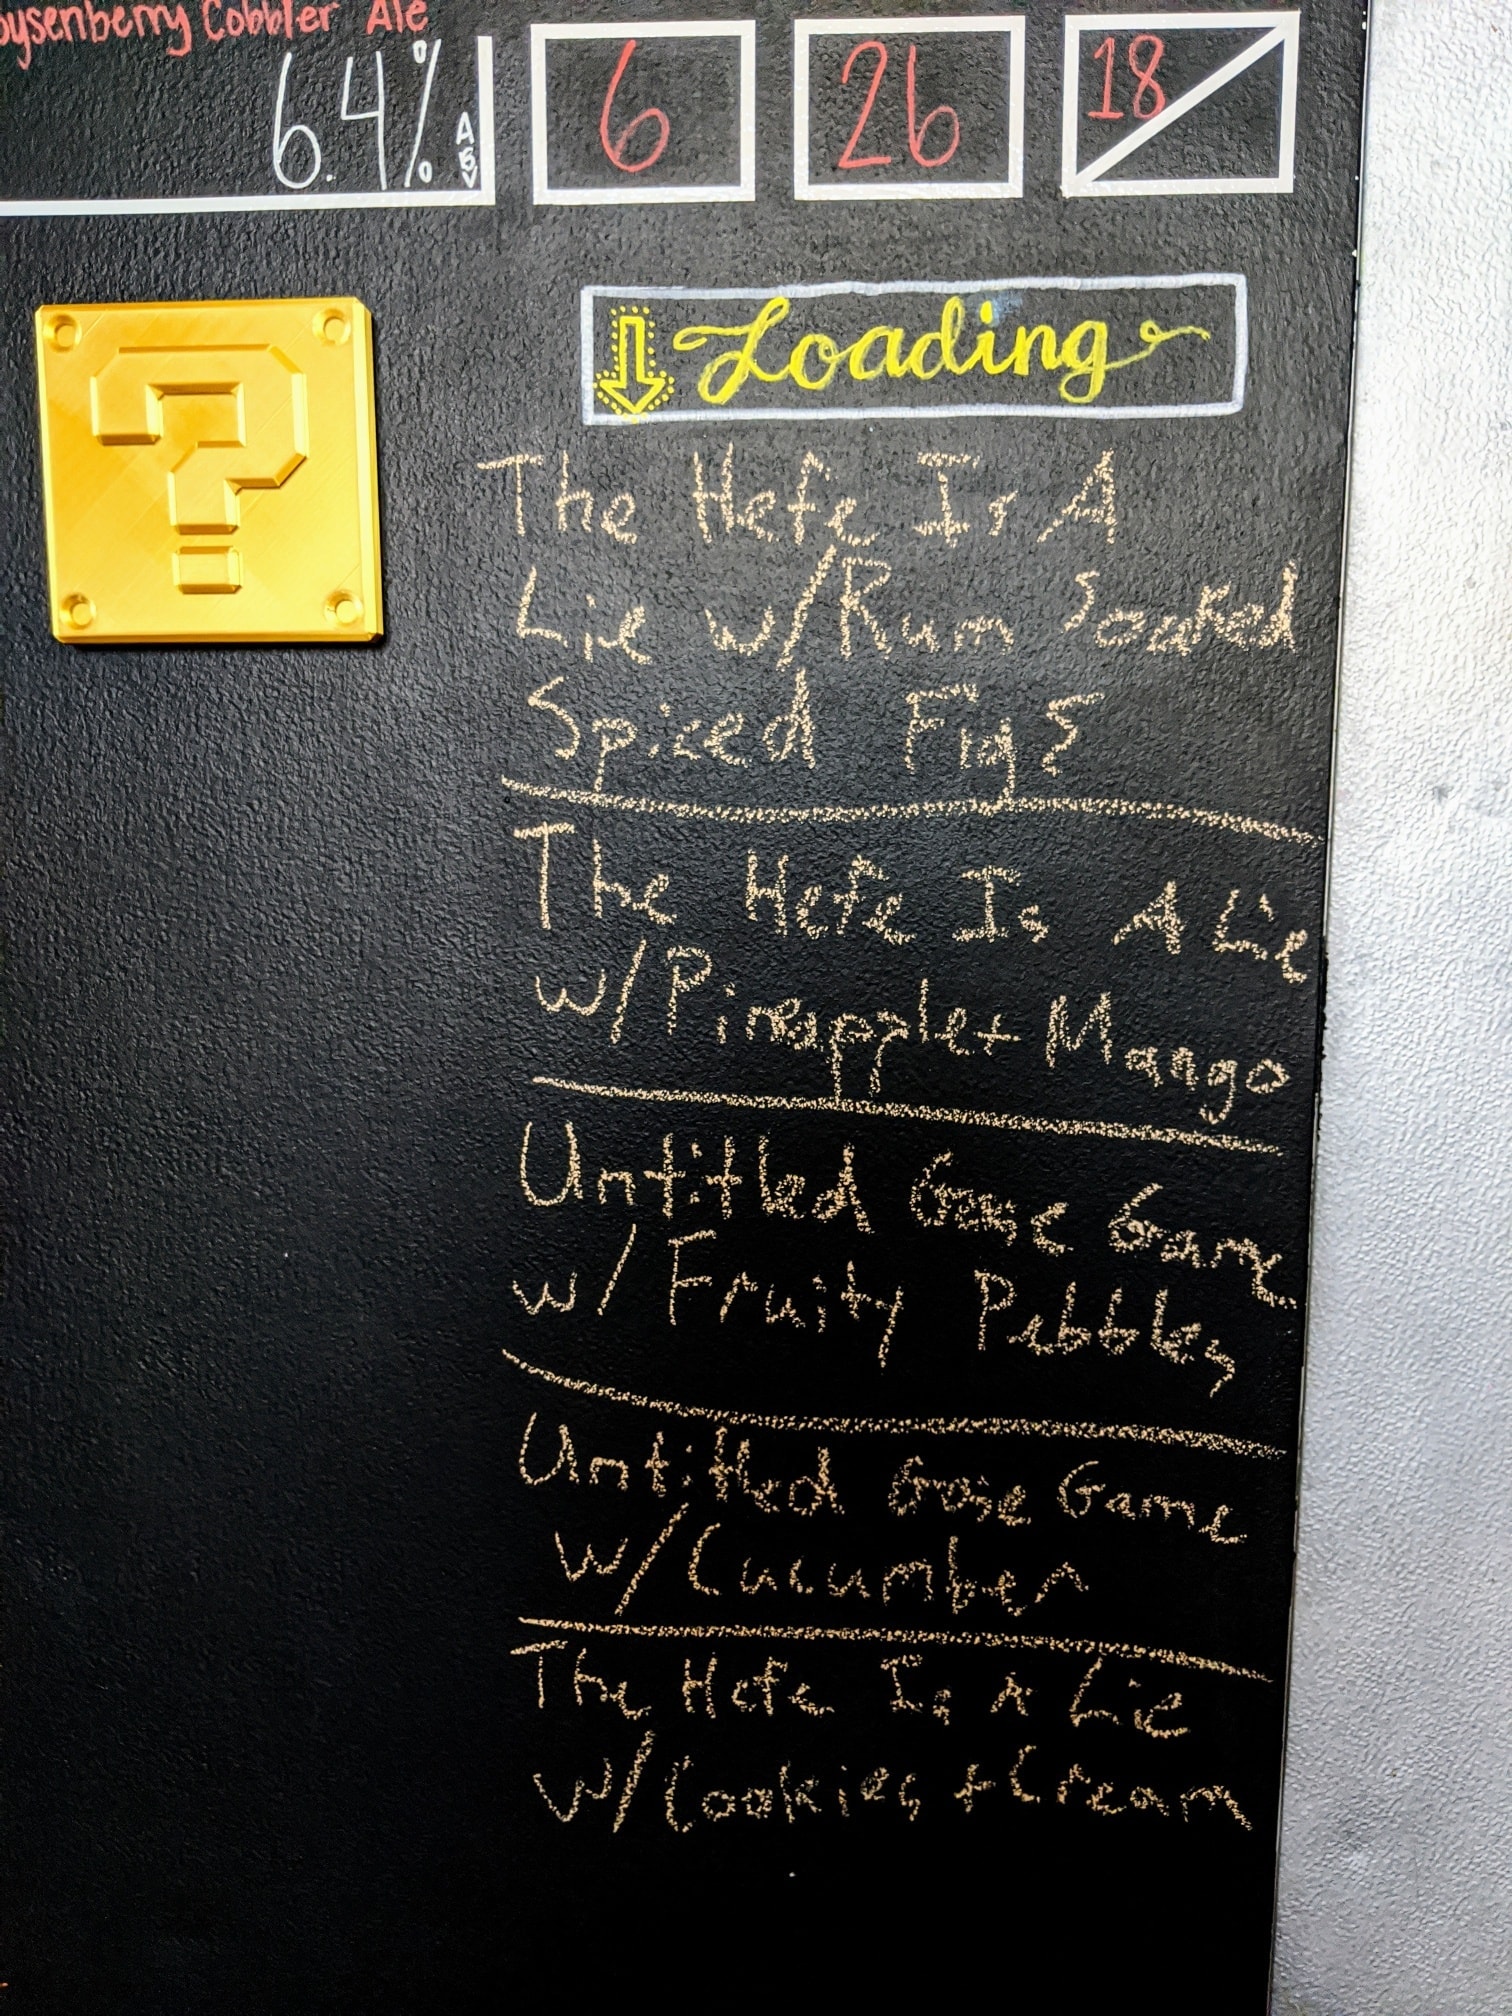 oysenberry Cobbler Ale
6.4% ABV
6
26
18
?
Loading
The Hefe Is A
Lie w/Rum Soaked
Spiced Figs
The Hefe Is A Lie
w/Pineapple+ Mango
Untitled Gose Game
w/ Fruity Pebbles
Untitled Gose Game
w/Cucumber
The Hefe Is A Lie
w/Cookies + Cream